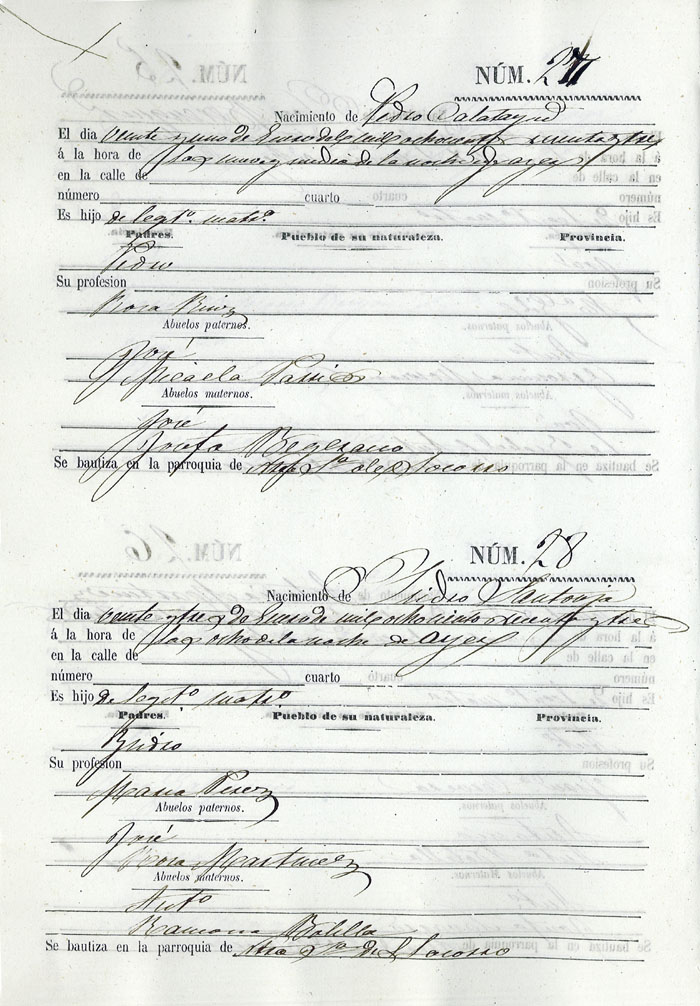 NÚM. 27
Nacimiento de Pedro Calatayud
El dia veinte y uno de Enero de mil ochocientos sesenta y tres
á la hora de las nueve y media de la noche de ayer
en la calle de
número cuarto
Es hijo de legto. matro.
Padres. Pueblo de su naturaleza. Provincia.
Pedro
Su profesion
Rosa
Abuelos paternos.
José
Micaela
Abuelos maternos.
José
Josefa
Se bautiza en la parroquia de Ntra Sra. del Socorro
NÚM. 28
Nacimiento de Isidro Santonja
El dia veinte y tres de Enero de mil ochocientos sesenta y tres
á la hora de las ocho de la noche de ayer
en la calle de
número cuarto
Es hijo de legto. matro.
Padres. Pueblo de su naturaleza. Provincia.
Isidro
Su profesion
Maria Perez
Abuelos paternos.
José
Rosa Martinez
Abuelos maternos.
Anto.
Ramona
Se bautiza en la parroquia de Ntra Sra. del Socorro